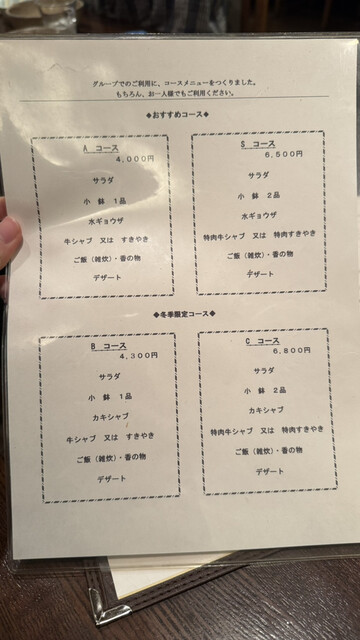 グループでのご利用に、コースメニューをつくりました。
もちろん、お一人様でもご利用ください。
◆おすすめコース◆
A コース
4,000円
サラダ
小 鉢 1品
水ギョウザ
牛シャブ 又は すきやき
ご飯（雑炊）・香の物
デザート
S コース
6,500円
サラダ
小 鉢 2品
水ギョウザ
特肉牛シャブ 又は 特肉すきやき
ご飯（雑炊）・香の物
デザート
◆冬季限定コース◆
B コース
4,300円
サラダ
小 鉢 1品
カキシャブ
牛シャブ 又は すきやき
ご飯（雑炊）・香の物
デザート
C コース
6,800円
サラダ
小 鉢 2品
カキシャブ
特肉牛シャブ 又は 特肉すきやき
ご飯（雑炊）・香の物
デザート